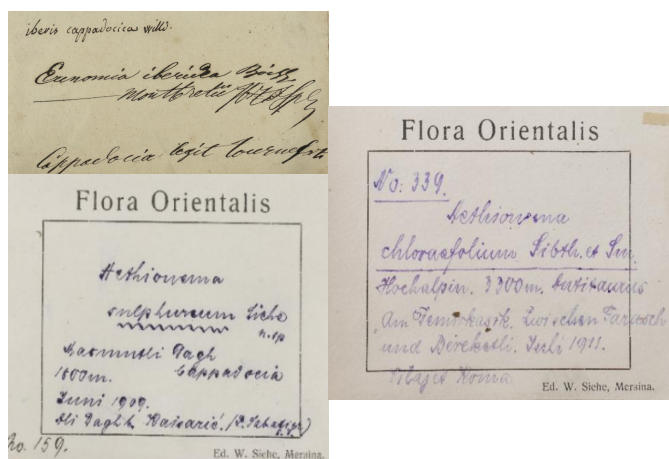 iberis cappadocica willd.
Eunomia iberidea Boiss
Cappadocia legit tournefort
Flora Orientalis
Aethionema
sulphureum Siehe
n. sp
Masmutli Dagh
1800m. Cappadocia
Juni 1909.
Ali Daghh Kaisarié.
No. 159.
Ed. W. Siehe, Mersina.
Flora Orientalis
No: 339.
Aethionema
chloraefolium Sibth. et Sm.
Hochalpin. 3300m. Antitaurus
Am Demirkasik. Zwischen Farasch
und Bereketli. Juli 1911.
Vilajet Konia
Ed. W. Siehe, Mersina.